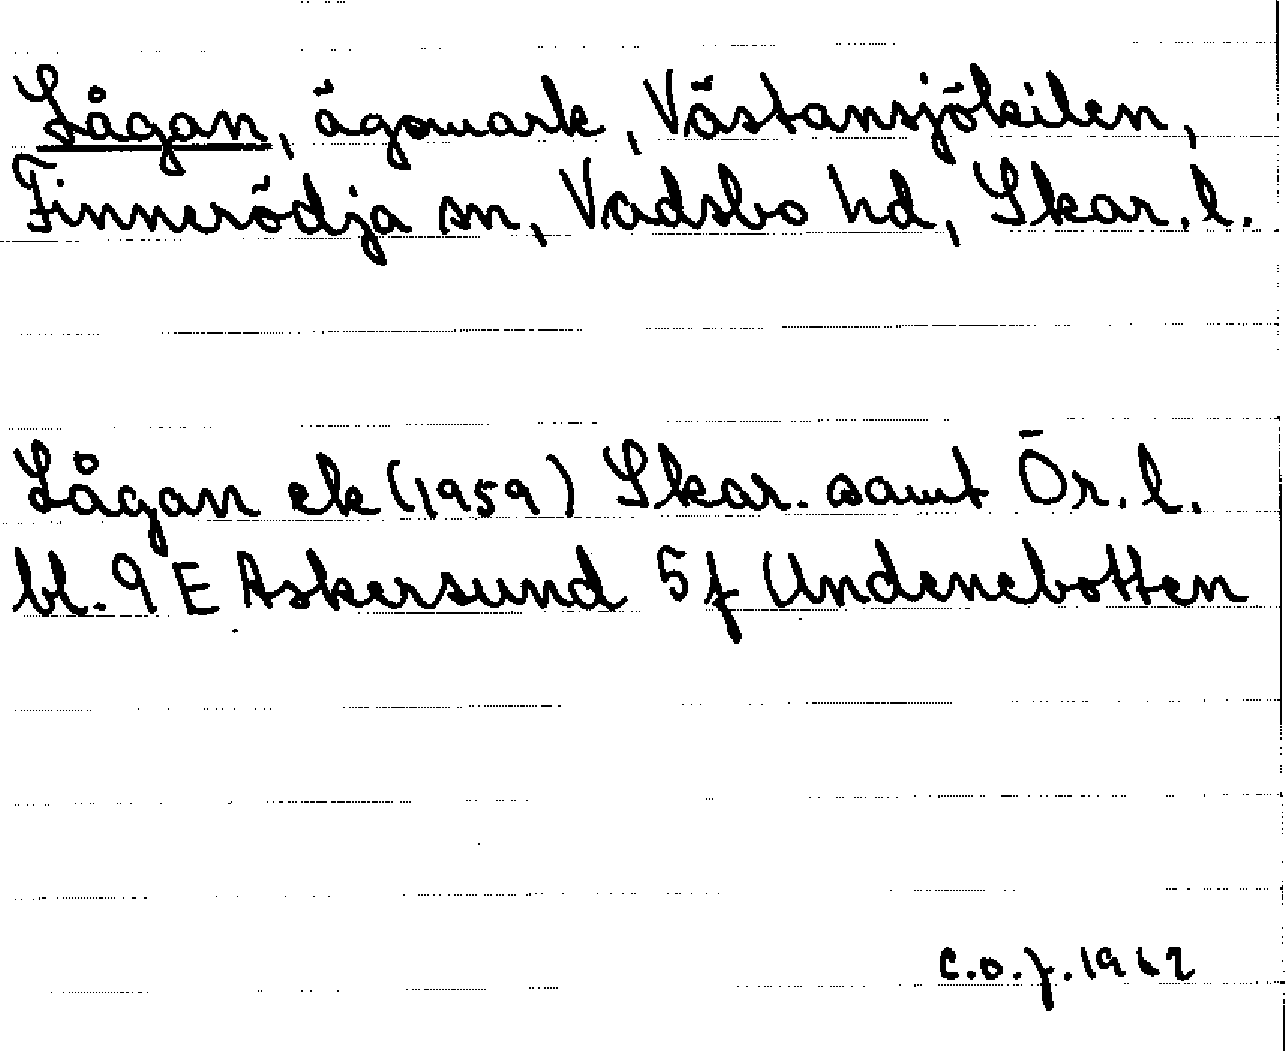 Lågan, ägomark, Västansjökilen,
Finnerödja sn, Vadsbo hd, Skar. l.
Lågan ek (1959) Skar. samt Ör. l.
bl. 9 E Askersund 5f Undenebotten
C.o.f. 1962